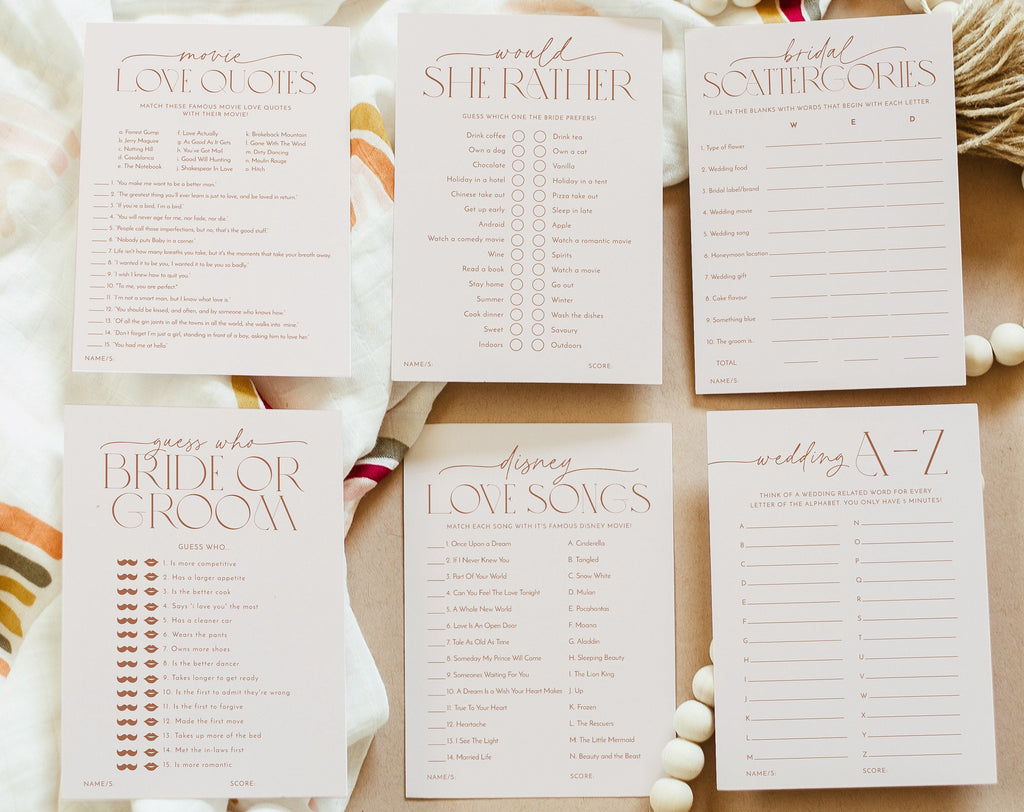 movie
LOVE QUOTES
MATCH THESE FAMOUS MOVIE LOVE QUOTES
WITH THEIR MOVIE!
a. Forrest Gump
b. Jerry Maguire
c. Notting Hill
d. Casablanca
e. The Notebook
f. Love Actually
g. As Good As It Gets
h. You've Got Mail
i. Good Will Hunting
j. Shakespear In Love
k. Brokeback Mountain
l. Gone With The Wind
m. Dirty Dancing
n. Moulin Rouge
o. Hitch
1. "You make me want to be a better man."
2. "The greatest thing you'll ever learn is just to love, and be loved in return."
3. "If you're a bird, I'm a bird."
4. "You will never age for me, nor fade, nor die."
5. "People call those imperfections, but no, that's the good stuff."
6. "Nobody puts Baby in a corner."
7. Life isn't how many breaths you take, but it's the moments that take your breath away.
8. "I wanted it to be you, I wanted it to be you so badly."
9. "I wish I knew how to quit you."
10. "To me, you are perfect."
11. "I'm not a smart man, but I know what love is."
12. "You should be kissed, and often, and by someone who knows how."
13. "Of all the gin joints in all the towns in all the world, she walks into mine."
14. "Don't forget I'm just a girl, standing in front of a boy, asking him to love her."
15. "You had me at hello"
NAME/S:
would
SHE RATHER
GUESS WHICH ONE THE BRIDE PREFERS!
Drink coffee Drink tea
Own a dog Own a cat
Chocolate Vanilla
Holiday in a hotel Holiday in a tent
Chinese take out Pizza take out
Get up early Sleep in late
Android Apple
Watch a comedy movie Watch a romantic movie
Wine Spirits
Read a book Watch a movie
Stay home Go out
Summer Winter
Cook dinner Wash the dishes
Sweet Savoury
Indoors Outdoors
NAME/S: SCORE:
bridal
SCATTERGORIES
FILL IN THE BLANKS WITH WORDS THAT BEGIN WITH EACH LETTER.
W E D
1. Type of flower
2. Wedding food
3. Bridal label/brand
4. Wedding movie
5. Wedding song
6. Honeymoon location
7. Wedding gift
8. Cake flavour
9. Something blue
10. The groom is..
TOTAL
NAME/S:
guess who
BRIDE OR
GROOM
GUESS WHO...
1. Is more competitive
2. Has a larger appetite
3. Is the better cook
4. Says "i love you" the most
5. Has a cleaner car
6. Wears the pants
7. Owns more shoes
8. Is the better dancer
9. Takes longer to get ready
10. Is the first to admit they're wrong
11. Is the first to forgive
12. Made the first move
13. Takes up more of the bed
14. Met the in-laws first
15. Is more romantic
NAME/S: SCORE:
disney
LOVE SONGS
MATCH EACH SONG WITH IT'S FAMOUS DISNEY MOVIE!
1. Once Upon a Dream A. Cinderella
2. If I Never Knew You B. Tangled
3. Part Of Your World C. Snow White
4. Can You Feel The Love Tonight D. Mulan
5. A Whole New World E. Pocahontas
6. Love Is An Open Door F. Moana
7. Tale As Old As Time G. Aladdin
8. Someday My Prince Will Come H. Sleeping Beauty
9. Someones Waiting For You I. The Lion King
10. A Dream Is a Wish Your Heart Makes J. Up
11. True To Your Heart K. Frozen
12. Heartache L. The Rescuers
13. I See The Light M. The Little Mermaid
14. Married Life N. Beauty and the Beast
NAME/S: SCORE:
wedding A-Z
THINK OF A WEDDING RELATED WORD FOR EVERY
LETTER OF THE ALPHABET. YOU ONLY HAVE 5 MINUTES!
A N
B O
C P
D Q
E R
F S
G T
H U
I V
J W
K X
L Y
M Z
NAME/S: SCORE: